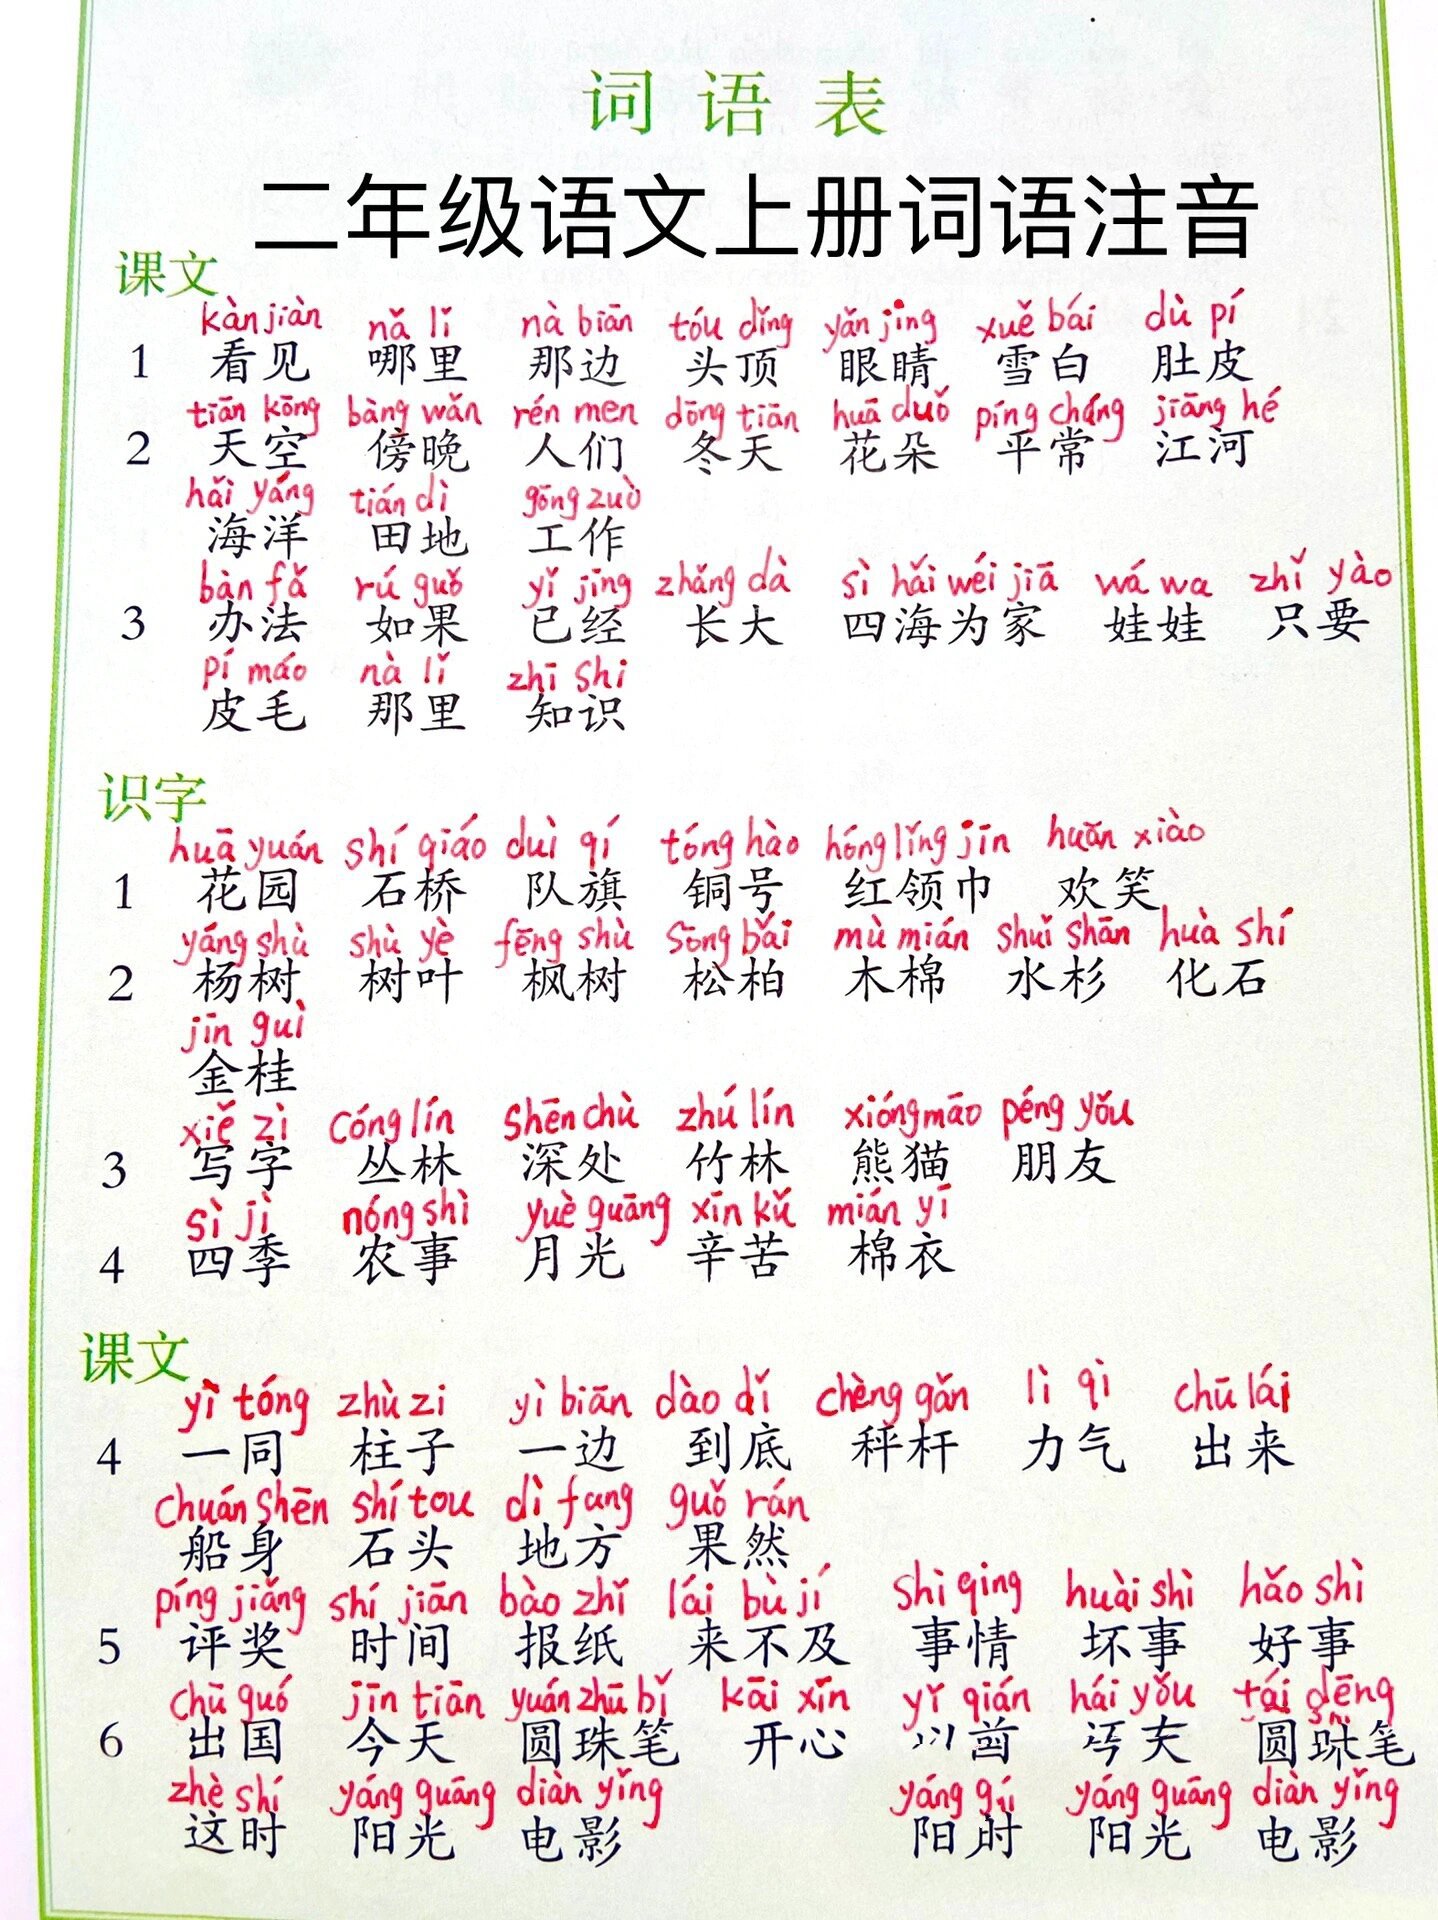 词语表
二年级语文上册词语注音
课文
kàn jiàn nǎ lǐ nà biān tóu dǐng yǎn jing xuě bái dù pí
1 看见 哪里 那边 头顶 眼睛 雪白 肚皮
tiān kōng bàng wǎn rén men dōng tiān huā duǒ píng cháng jiāng hé
2 天空 傍晚 人们 冬天 花朵 平常 江河
hǎi yáng tián dì gōng zuò
海洋 田地 工作
bàn fǎ rú guǒ yǐ jīng zhǎng dà sì hǎi wéi jiā wá wa zhǐ yào
3 办法 如果 已经 长大 四海为家 娃娃 只要
pí máo nà lǐ zhī shi
皮毛 那里 知识
识字
huā yuán shí qiáo duì qí tóng hào hóng lǐng jīn huān xiào
1 花园 石桥 队旗 铜号 红领巾 欢笑
yáng shù shù yè fēng shù sōng bǎi mù mián shuǐ shān huà shí
2 杨树 树叶 枫树 松柏 木棉 水杉 化石
jīn guì
金桂
xiě zì cóng lín shēn chù zhú lín xióng māo péng yǒu
3 写字 丛林 深处 竹林 熊猫 朋友
sì jì nóng shì yuè guāng xīn kǔ mián yī
4 四季 农事 月光 辛苦 棉衣
课文
yì tóng zhù zi yì biān dào dǐ chèng gǎn lì qì chū lái
4 一同 柱子 一边 到底 秤杆 力气 出来
chuán shēn shí tou dì fang guǒ rán
船身 石头 地方 果然
píng jiǎng shí jiān bào zhǐ lái bù jí shì qing huài shì hǎo shì
5 评奖 时间 报纸 来不及 事情 坏事 好事
chū guó jīn tiān yuán zhū bǐ kāi xīn yǐ qián hái yǒu
6 出国 今天 圆珠笔 开心 圆 笔
zhè shí yáng guāng diàn yǐng yáng yáng guāng diàn yǐng
这时 阳光 电影 阳时 阳光 电影